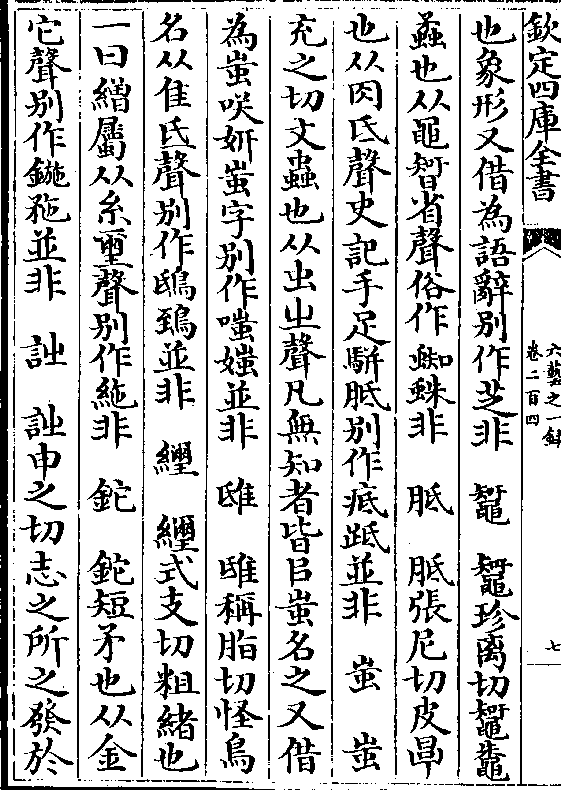 欽定四庫全書
六藝之一録
卷二百四
七
也象形又借為語辭別作芝非 鼅 鼅珍离切鼅鼄
蟊也从黽智省聲俗作蜘蛛非 胝 胝張尼切皮㽸
也从肉氐聲史記手足駢胝別作疷跖並非 蚩 蚩
充之切文蟲也从虫㞢聲凡無知者皆㠯蚩名之又借
為蚩咲妍蚩字別作嗤媸並非 䧴 䧴稱脂切怪鳥
名从隹氐聲別作鴟鵄並非 纚 纚式支切粗緒也
一曰繒屬从糸璽聲別作絁非 鉈 鉈短矛也从金
它聲別作鍦䂠並非 訨 訨申之切志之所之發於